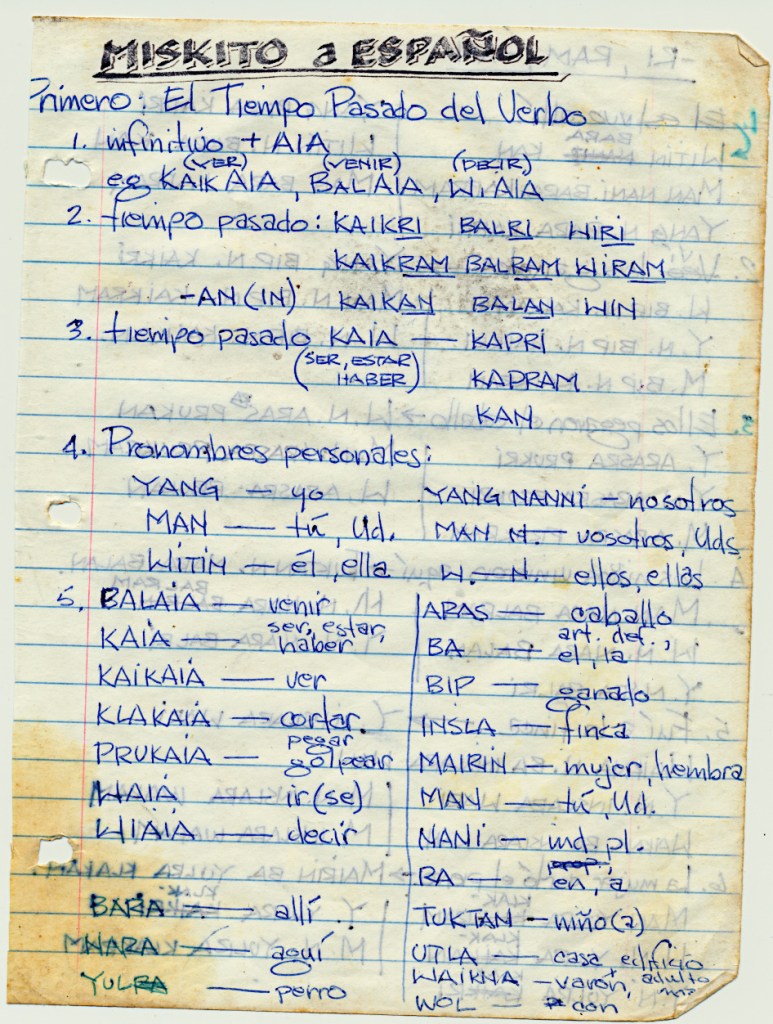 MISKITO a ESPAÑOL
Primero: El Tiempo Pasado del Verbo
1. infinitivo + AIA
(VER) (VENIR) (DECIR)
e.g. KAIKAIA, BALAIA, WIAIA
2. tiempo pasado: KAIKRI BALRI WIRI
KAIKRAM BALRAM WIRAM
-AN (IN) KAIKAN BALAN WIN
3. tiempo pasado KAIA — KAPRI
(SER, ESTAR HABER) KAPRAM
KAN
4. Pronombres personales:
YANG — yo YANG NANNI — nosotros
MAN — tú, Ud. MAN N. — vosotros, Uds
WITIN — él, ella W. N. — ellos, ellas
5. BALAIA — venir
KAIA — ser, estar, haber
KAIKAIA — ver
KLAKAIA — cortar
PRUKAIA — pegar golpear
WAIA — ir(se)
WIAIA — decir
BARA — allí
NARA — aquí
YUL — perro
ARAS — caballo
BA — art. def., el, la
BIP — ganado
INSLA — finca
MAIRIN — mujer, hembra
MAN — tú, Ud.
NANI — ind. pl.
RA — en, a
TUKTAN — niño(a)
UTLA — casa, edificio
WAIKNA — varón, adulto
WOL — con